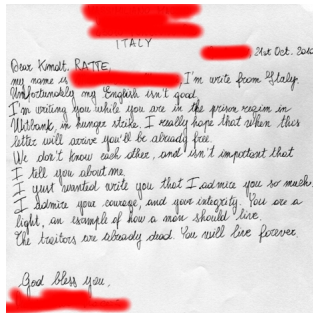 ITALY
21st Oct.
Dear Kmdt. RATTE,
my name is I'm write from Italy.
Unfortunately my English isn't good.
I'm writing you while you are in the prison region in
Witbank, in hunger strike. I really hope that when this
letter will arrive you'll be already free.
We don't know each other, and isn't important that
I tell you about me.
I just wanted write you that I admire you so much.
I admire your courage, and your integrity. You are a
light, an example of how a man should live.
The traitors are already dead. You will live forever.
God bless you,